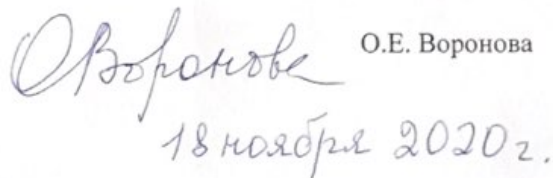 ОВоронова О.Е. Воронова
18 ноября 2020 г.